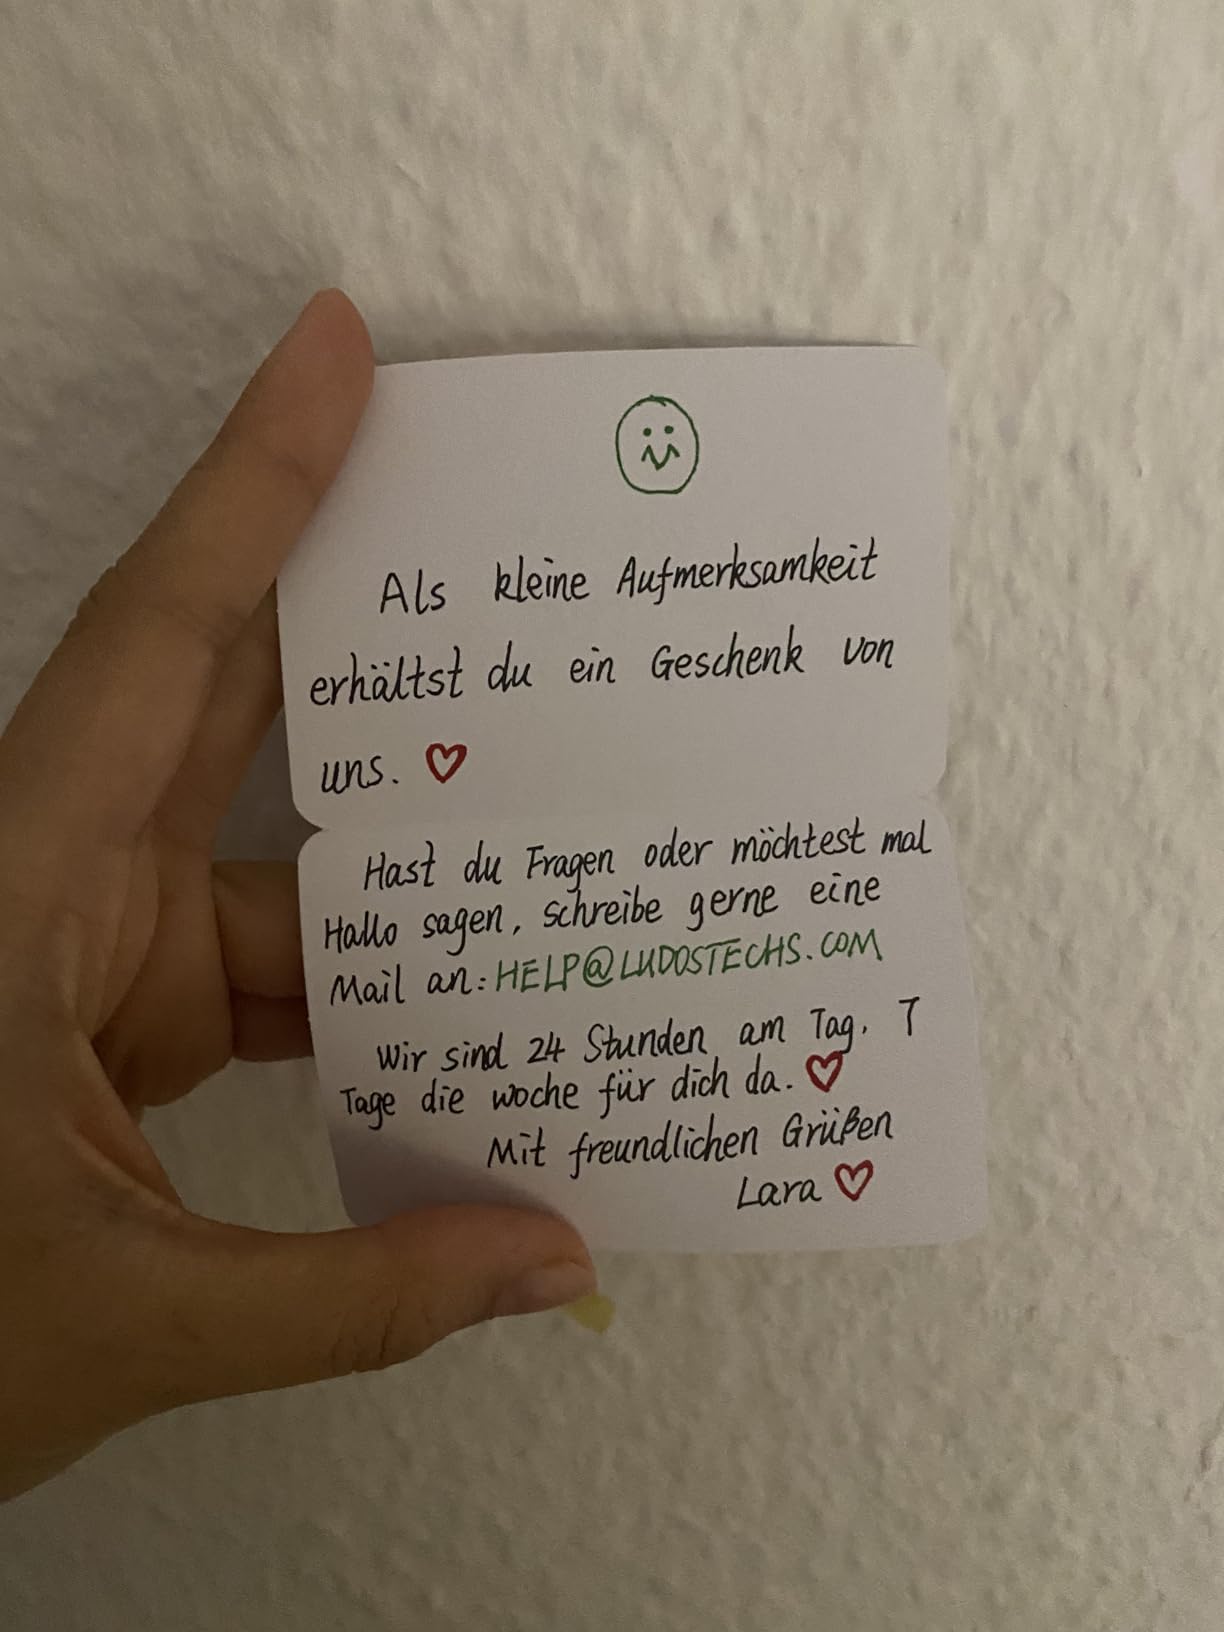 Als kleine Aufmerksamkeit
erhältst du ein Geschenk von
uns. ♡
Hast du Fragen oder möchtest mal
Hallo sagen, schreibe gerne eine
Mail an: HELP@LUDOSTECHS.COM
Wir sind 24 Stunden am Tag, 7
Tage die woche für dich da. ♡
Mit freundlichen Grüßen
Lara ♡